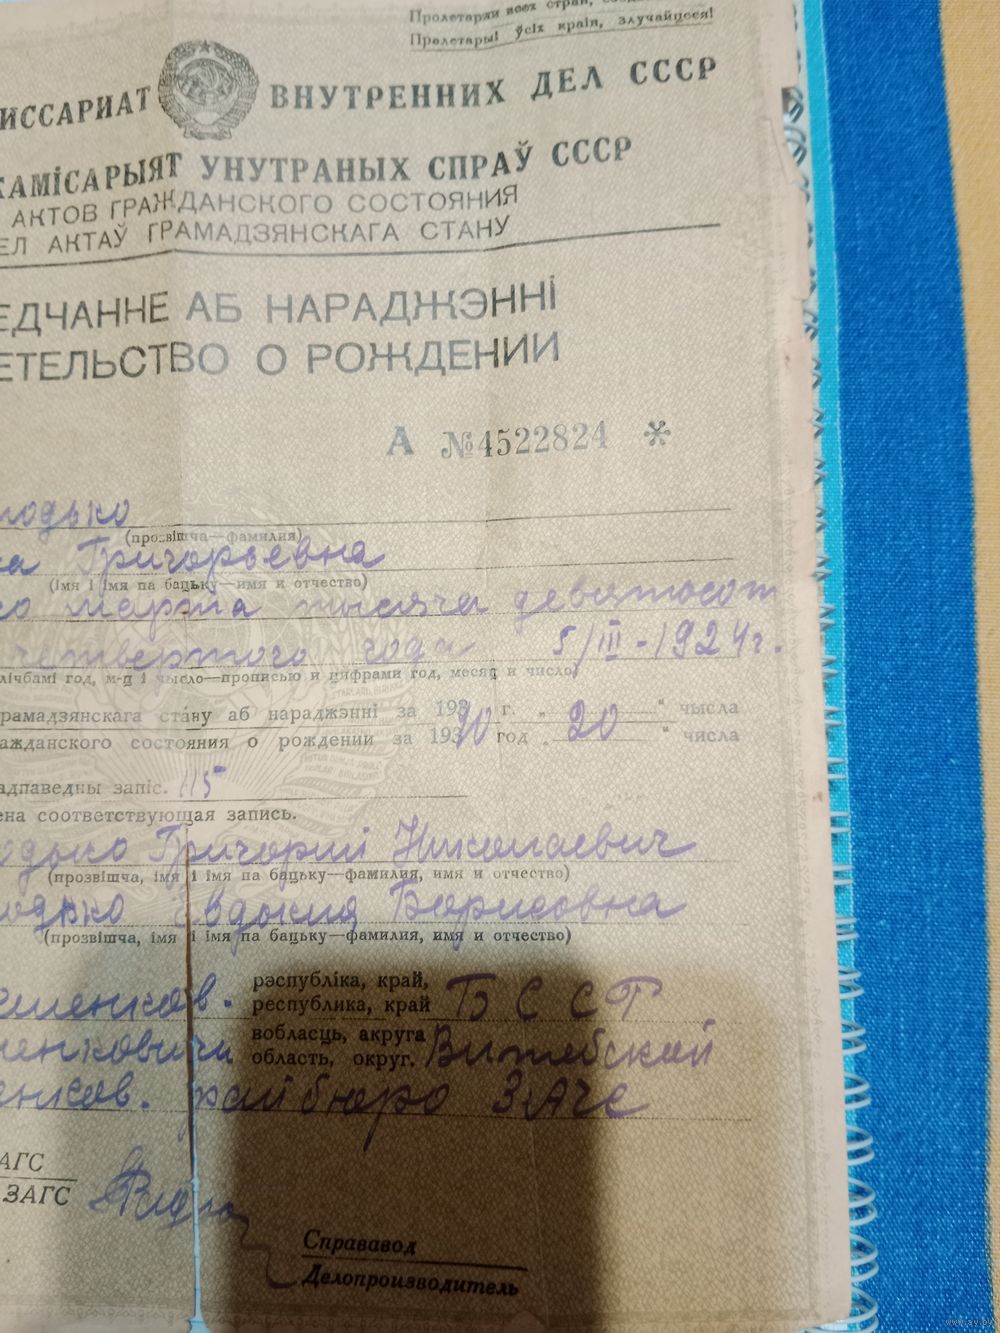 Пролетарии всех стран,
Пролетары! ўсіх краін, злучайцеся!
ИССАРИАТ ВНУТРЕННИХ ДЕЛ СССР
КАМІСАРЫЯТ УНУТРАНЫХ СПРАЎ СССР
АКТОВ ГРАЖДАНСКОГО СОСТОЯНИЯ
ЕЛ АКТАЎ ГРАМАДЗЯНСКАГА СТАНУ
ЕДЧАННЕ АБ НАРАДЖЭННІ
ЕТЕЛЬСТВО О РОЖДЕНИИ
А №4522824 *
одько
(прозвішча—фамилия)
Григорьевна
(імя і імя па бацьку—имя и отчество)
марта тысяча девятьсот
четвертого года 5/III-1924г.
лічбамі год, м-ц і чысло—прописью и цифрами год, месяц и число)
рамадзянскага стану аб нараджэнні за 1940 г. „ 20 " чысла
ажданского состояния о рождении за 1940 год „ 20 " числа
адпаведны запіс. 115
ена соответствующая запись.
одько Григорий Николаевич
(прозвішча, імя і імя па бацьку—фамилия, имя и отчество)
одько Евдокия Борисовна
(прозвішча, імя і імя па бацьку—фамилия, имя и отчество)
шенков. рэспубліка, край,
республика, край БССР
енковичи вобласць, акруга
область, округ. Витебской
енков. райбюро ЗАГС
АГС
ЗАГС
Справавод
Делопроизводитель
www.ay.by